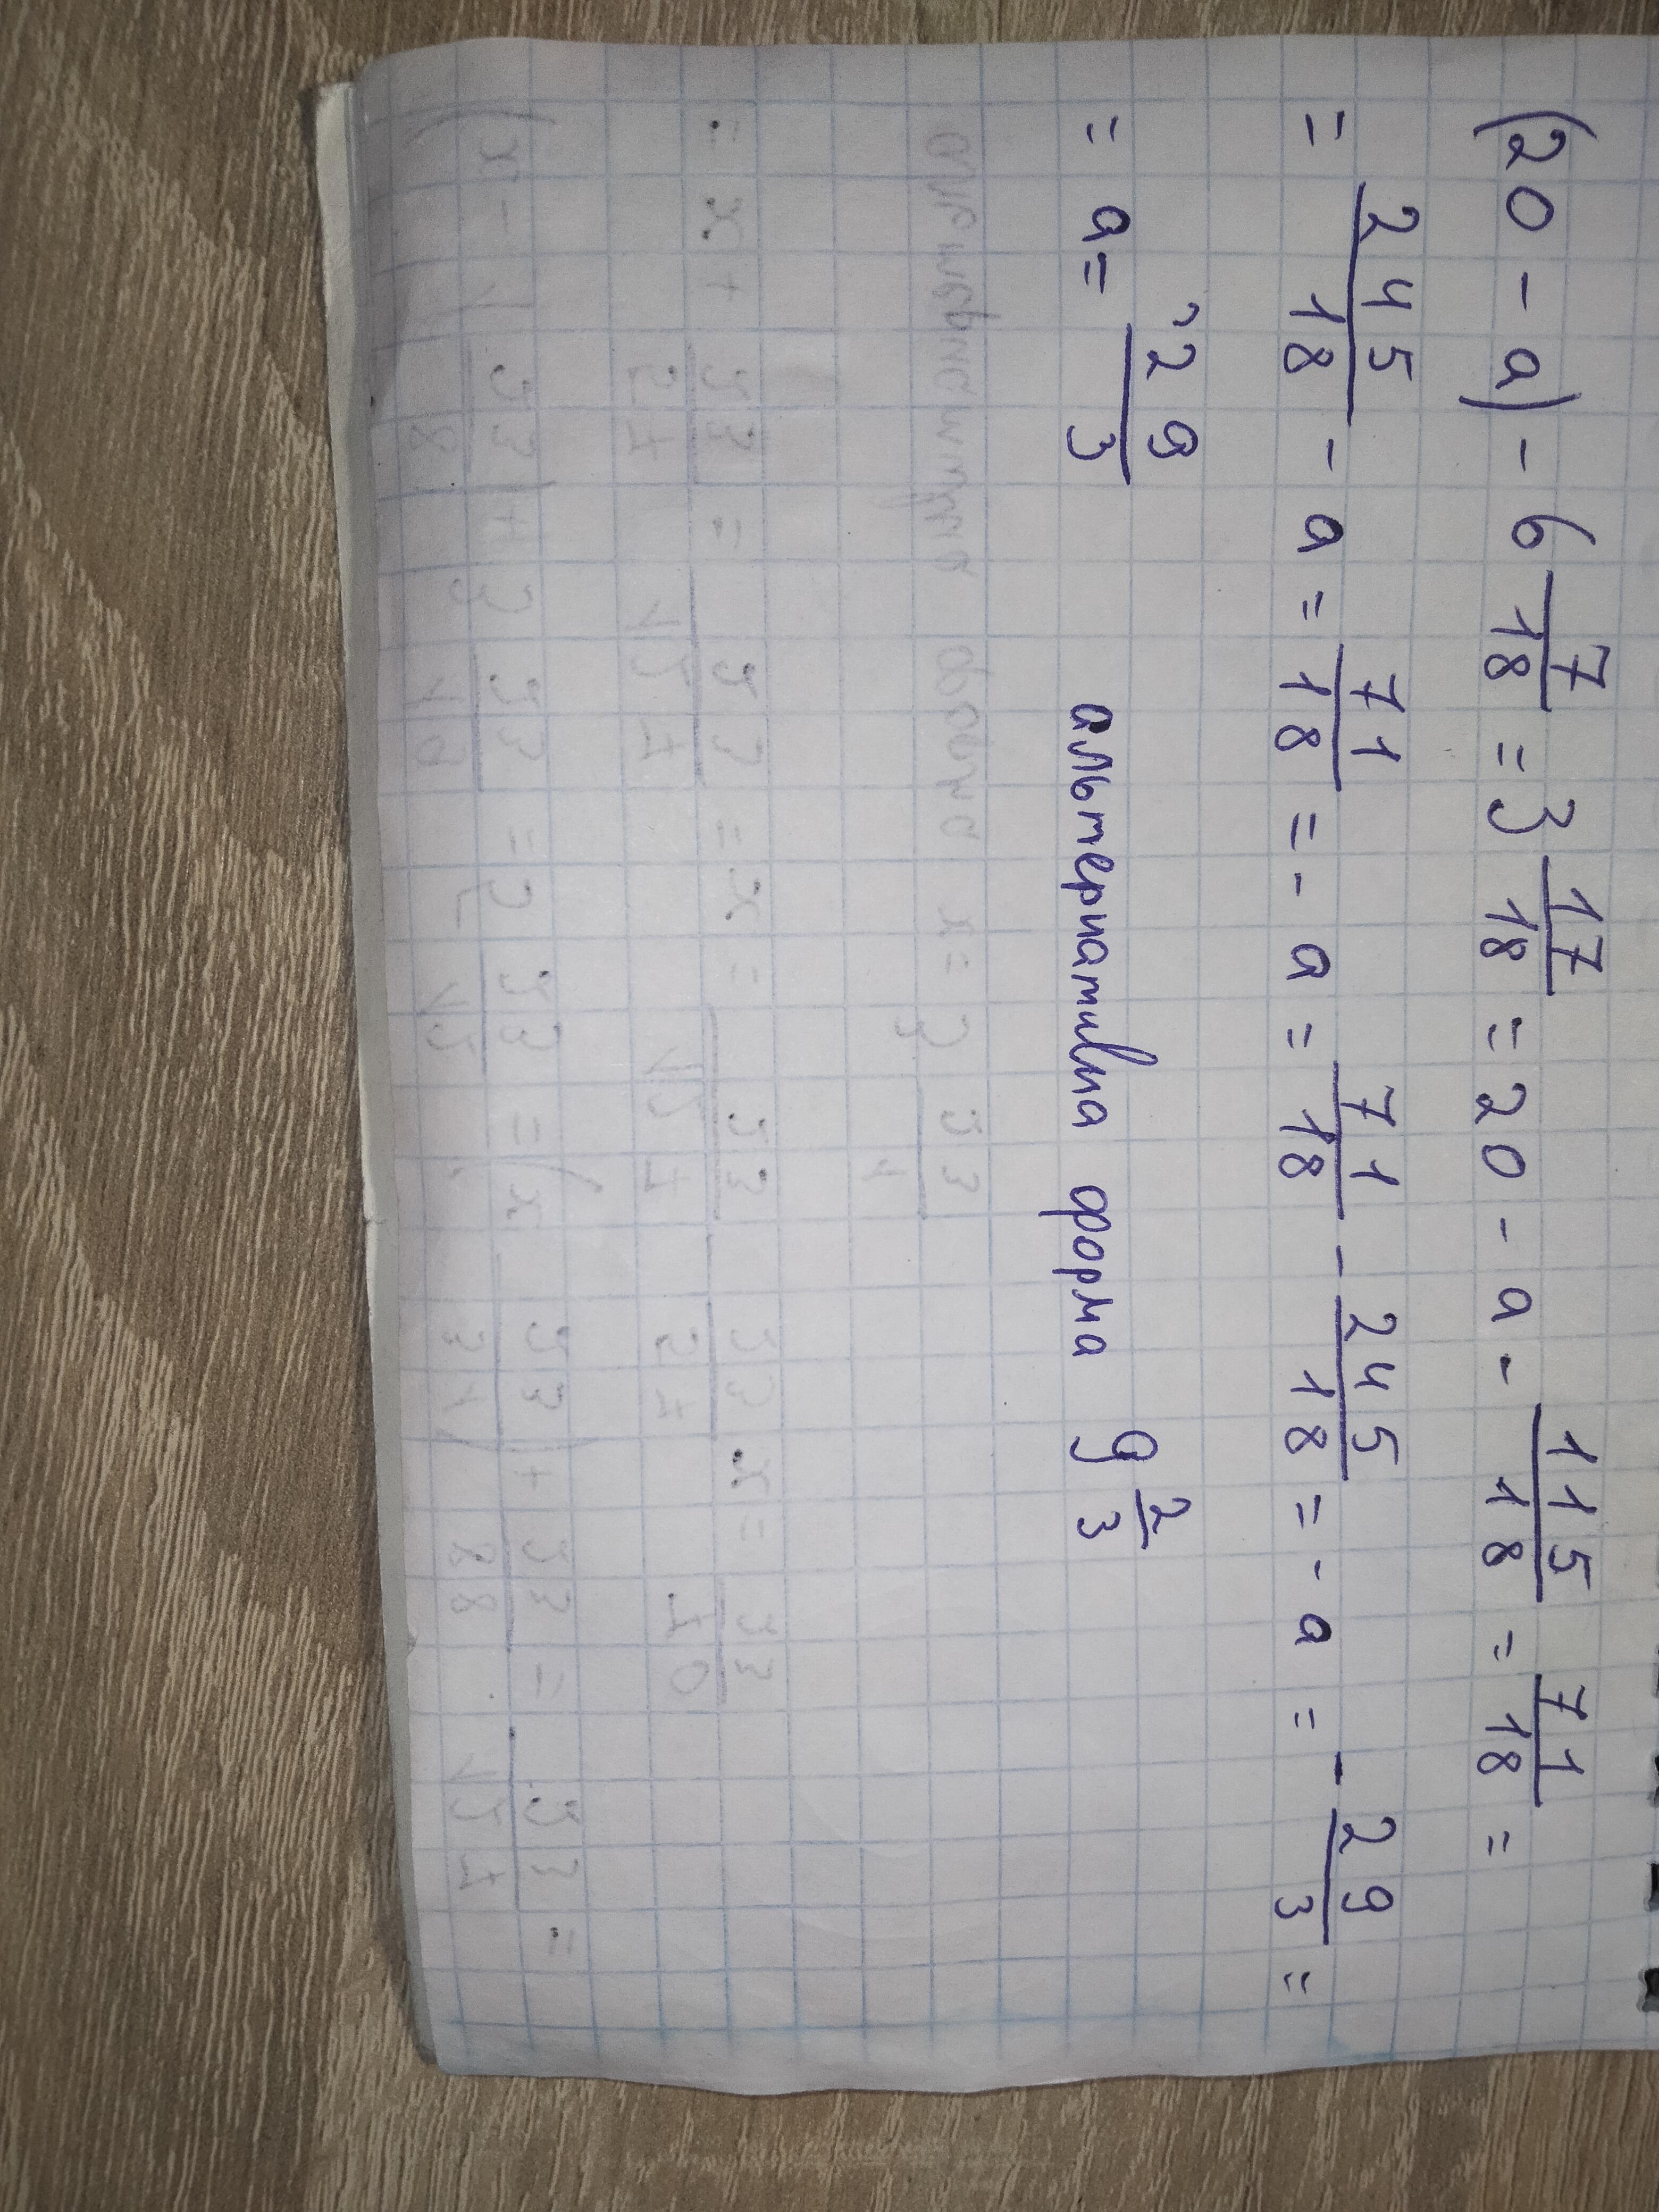 (20 - a) - 6 7/18 = 3 17/18 = 20 - a - 115/18 = 71/18 =
= 245/18 - a = 71/18 = - a = 71/18 - 245/18 = - a = - 29/3 =
= a = 29/3 альтернативна форма 9 2/3